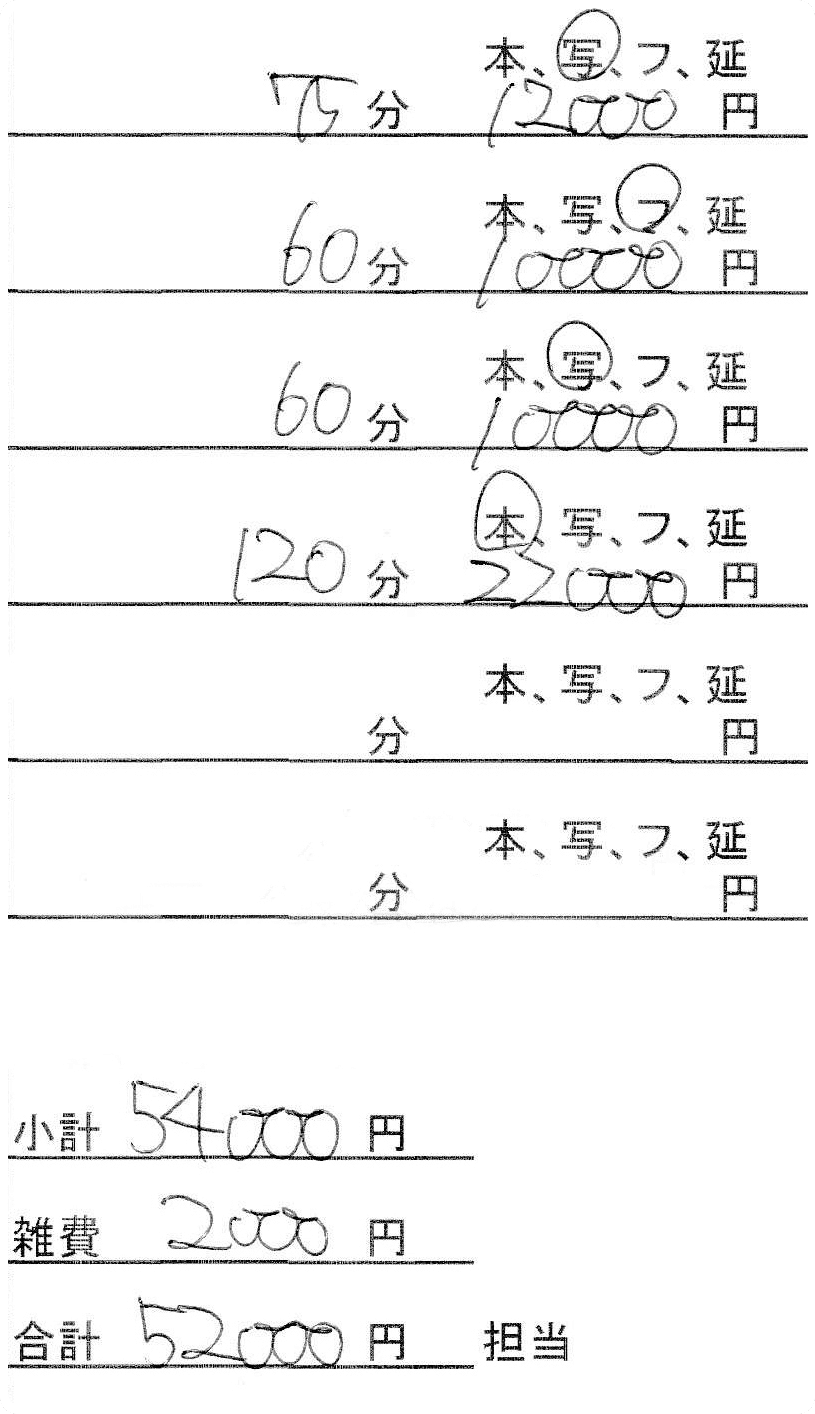 本、写、フ、延
75分 12000円
本、写、フ、延
60分 10000円
本、写、フ、延
60分 10000円
本、写、フ、延
120分 22000円
本、写、フ、延
分 円
本、写、フ、延
分 円
小計 54000円
雑費 2000円
合計 52000円 担当